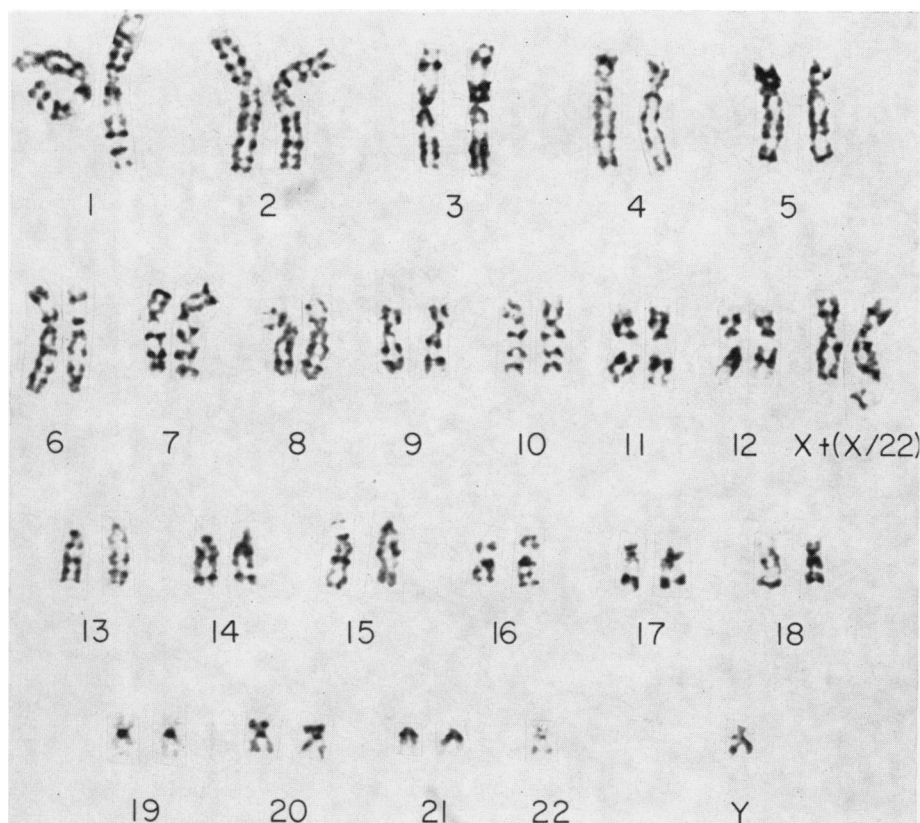 1 2 3 4 5
6 7 8 9 10 11 12 X+(X/22)
13 14 15 16 17 18
19 20 21 22 Y